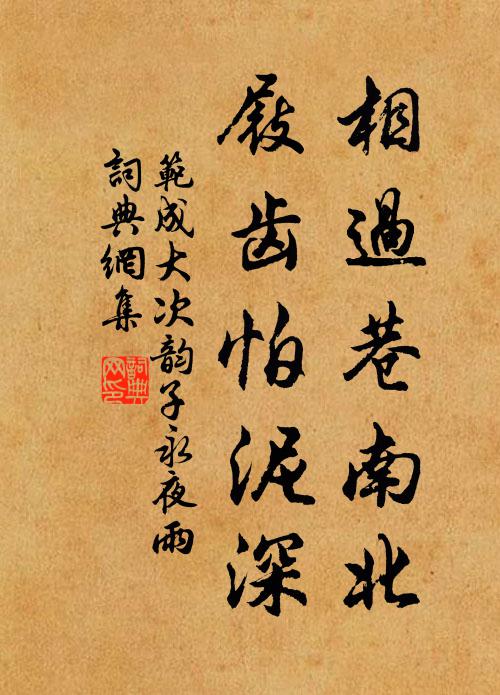 相過巷南北
屐齿怕泥深
範成大次韵子永夜雨
詞典網集
詞典網印